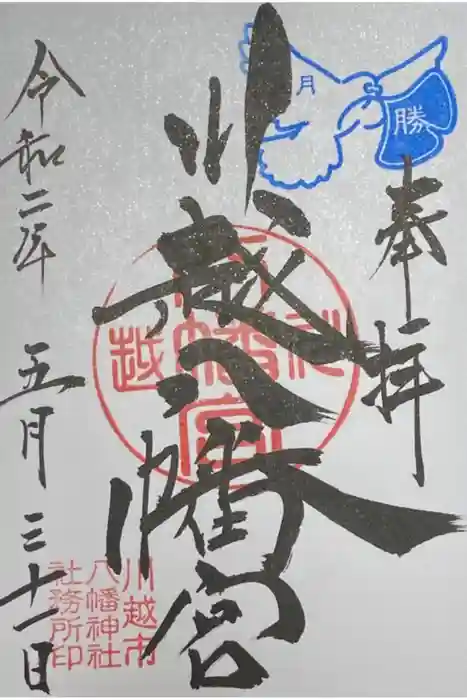 奉拝
月
勝
川越八幡宮
川越八幡宮社
川越市
八幡神社
社務所印
令和二年 五月 三十一日